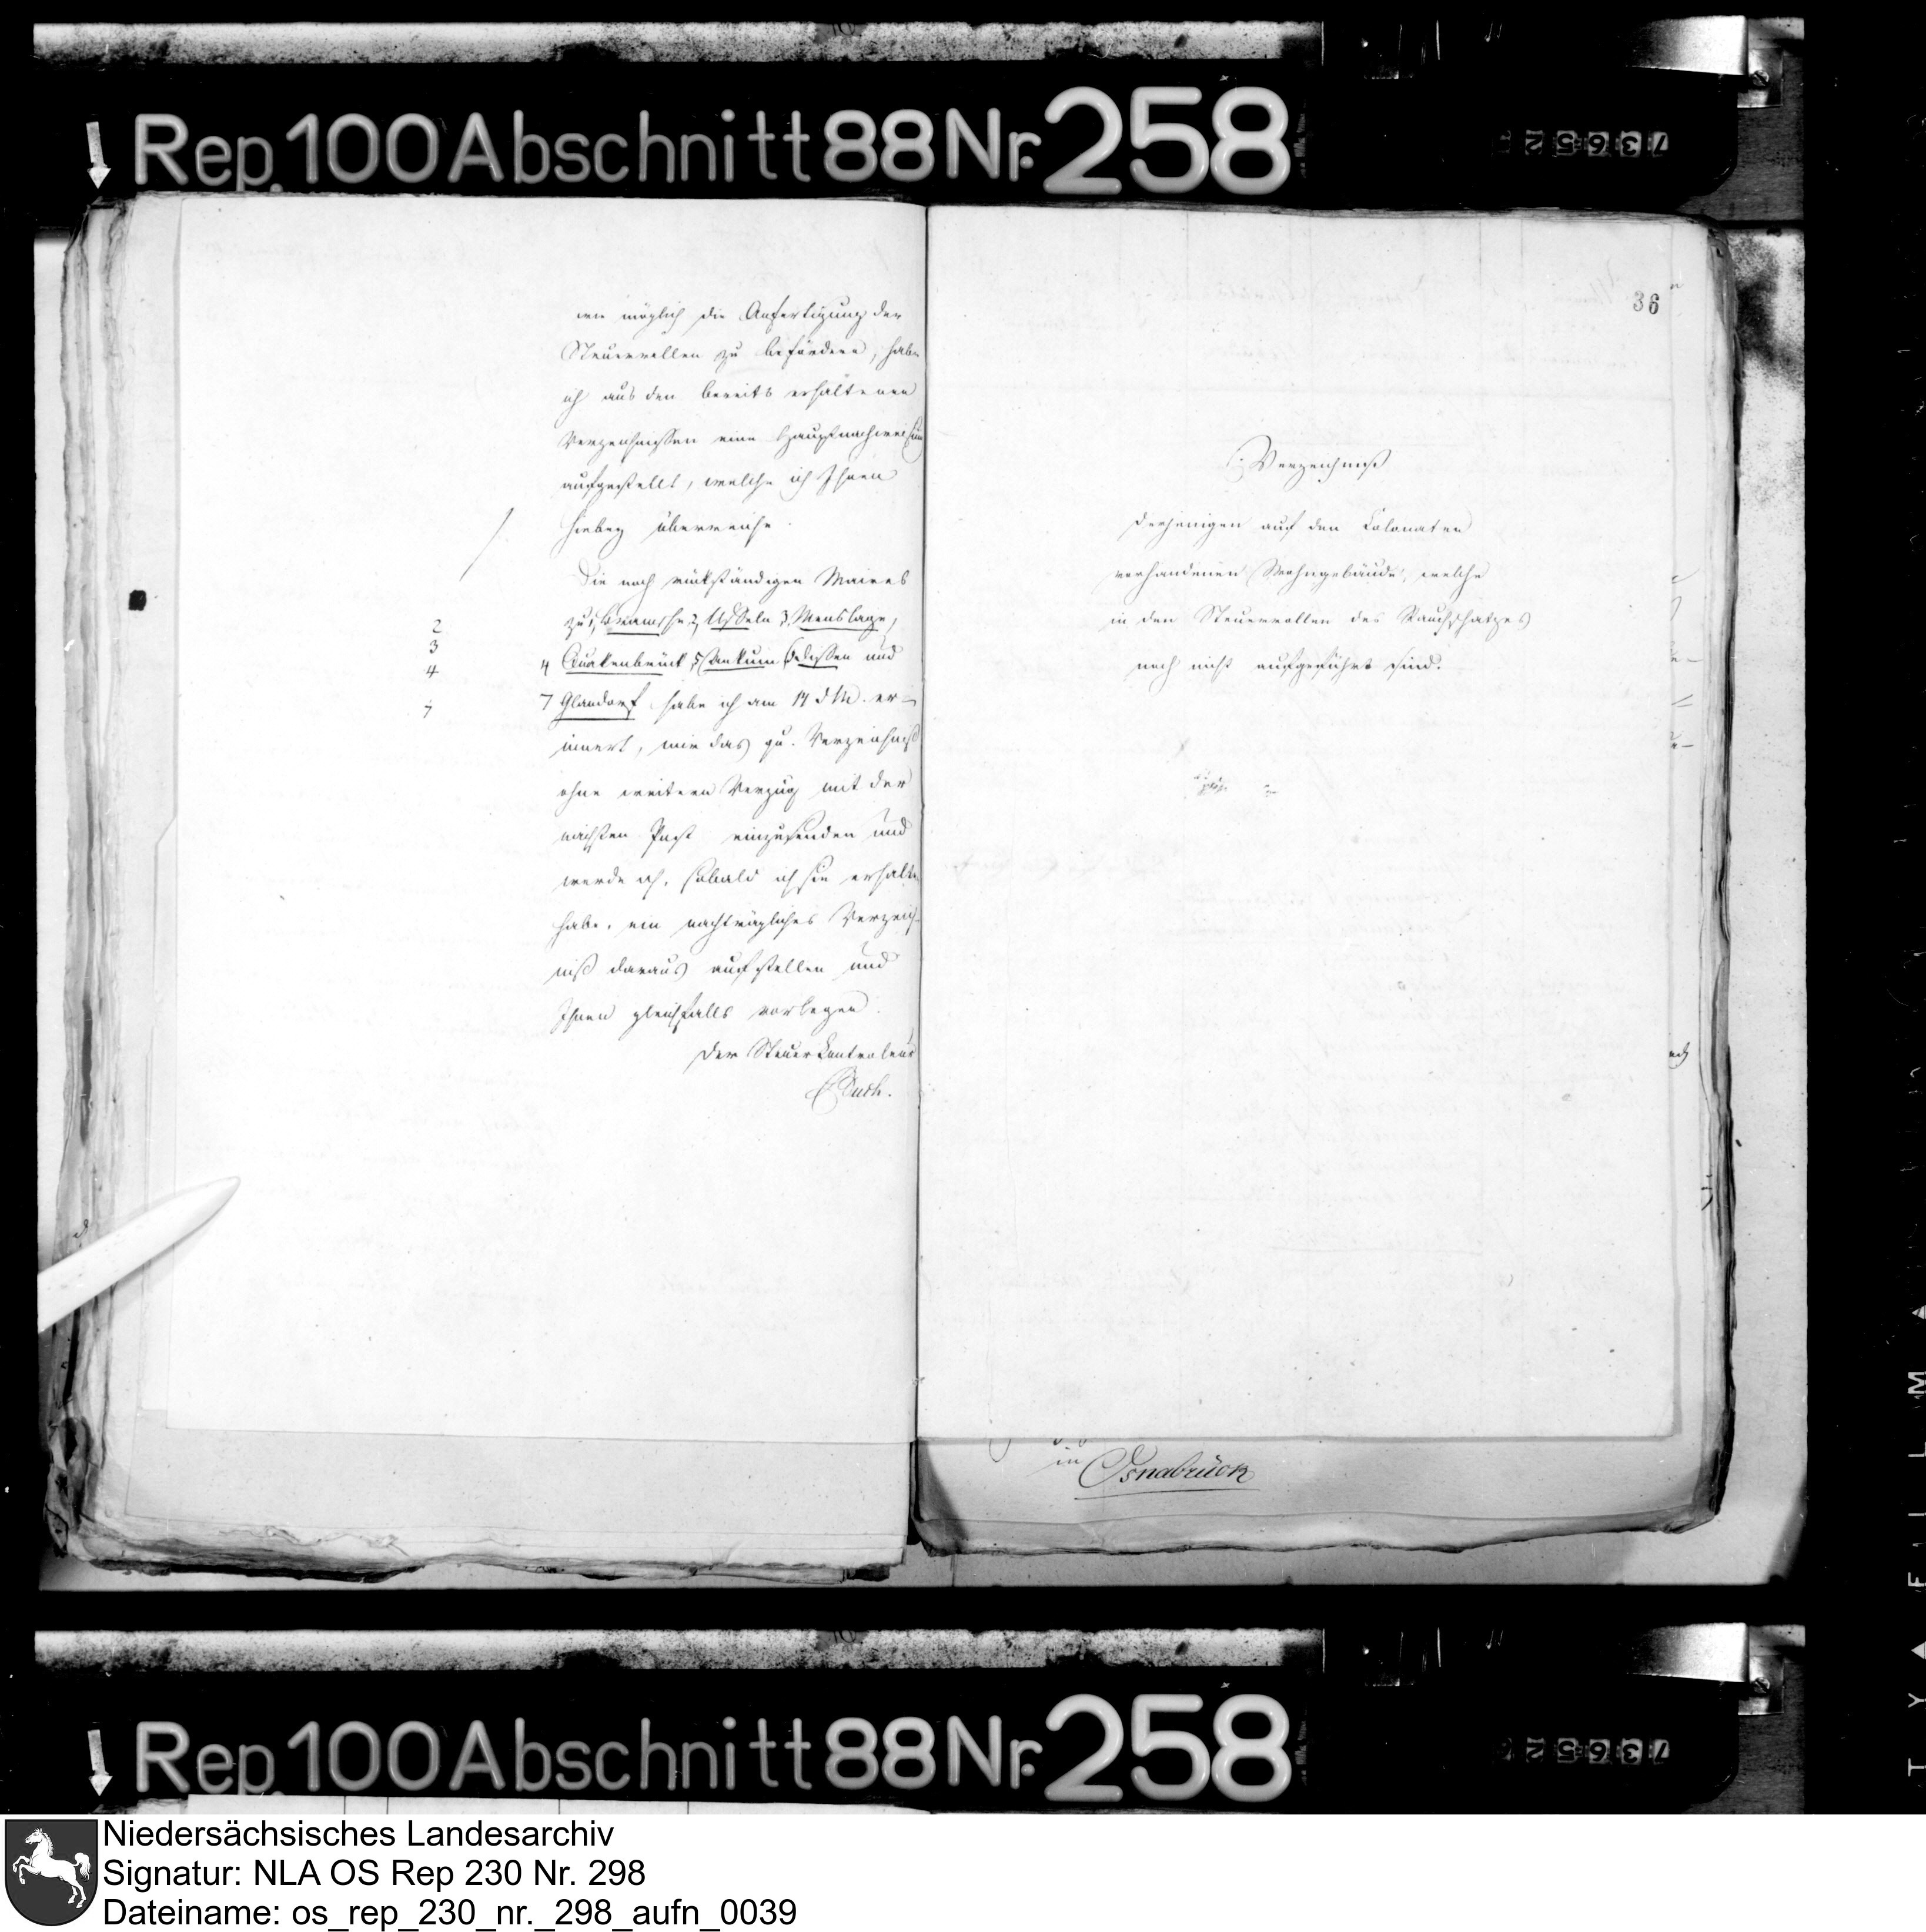 Rep. 100 Abschnitt 88 Nr. 258
73652
wie möglich die Anfertigung der
Steuerrollen zu befördern, habe
ich aus den bereits erhaltenen
Verzeichnissen eine Hauptnachweisung
aufgestellt, welche ich Ihnen
hiebey überreiche.
Die noch rückständigen Maires
zu 1, Bramsche 2, Uffeln 3, Menslage,
4 Quakenbrück 5, Ankum 6, Dissen und
7 Glandorf habe ich am 14 d M. er-
innert, mir das qu. Verzeichniß
ohne weitern Verzug mit der
nächsten Post einzusenden und
werde ich, sobald ich sie erhalten
habe, ein nachträgliches Verzeich-
niß daraus aufstellen und
Ihnen gleichfalls vorlegen.
Der Steuer Kontroleur
2
3
4
7
36
Verzeichniß
derjenigen auf den Colonaten
vorhandenen Wohngebäude, welche
in den Steuerrollen des Rauchschatzes
noch nicht aufgeführt sind.
in Osnabrück
Rep. 100 Abschnitt 88 Nr. 258
73652
Niedersächsisches Landesarchiv
Signatur: NLA OS Rep 230 Nr. 298
Dateiname: os_rep_230_nr._298_aufn_0039